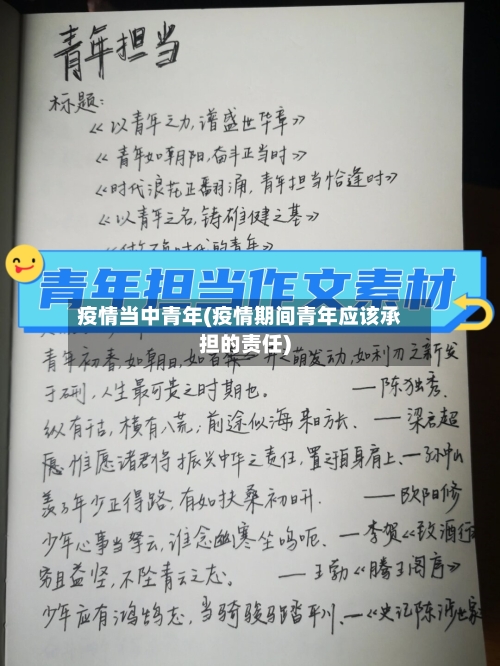 青年担当
标题：
《以青年之力，谱盛世华章》
《青年如朝阳，奋斗正当时》
《时代浪花正翻涌，青年担当恰逢时》
《以青年之名，铸雄健之基》
青年担当作文素材
疫情当中青年(疫情期间青年应该承
担的责任)
青年初春，如朝日，如百卉之萌发动，如利刃之新发
于硎，人生最可贵之时期也。 ——陈独秀
纵有千古，横有八荒；前途似海，来日方长。 ——梁启超
惟愿诸君将振兴中华之责任，置之于自身肩上。——孙中山
羡子年少正得路，有如扶桑初日升。 ——欧阳修
少年心事当拏云，谁念幽寒坐呜呃。——李贺《致酒行
穷且益坚，不坠青云之志。 ——王勃《滕王阁序》
少年应有鸿鹄志，当骑骏马踏平川。——《史记陈涉世家